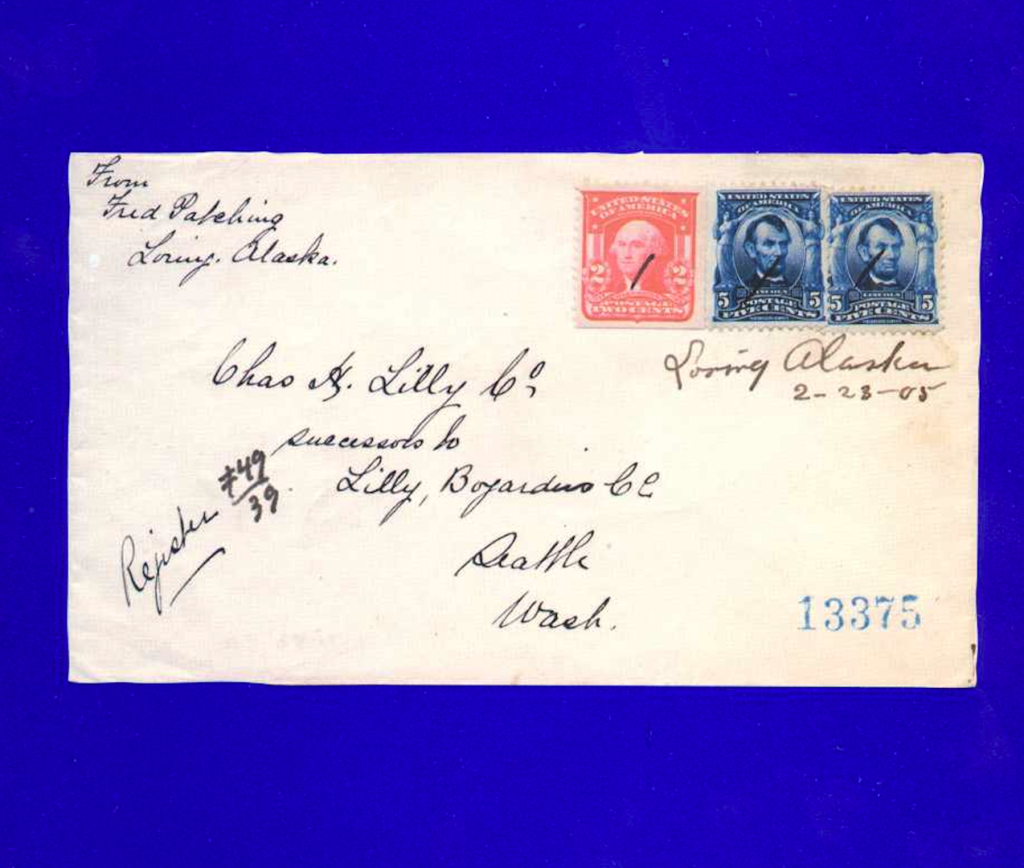 From
Fred Patching
Loring, Alaska.
UNITED STATES
OF AMERICA
2 2
POSTAGE
TWO CENTS
UNITED STATES
OF AMERICA
5 LINCOLN 5
POSTAGE
FIVE CENTS
UNITED STATES
OF AMERICA
5 LINCOLN 5
POSTAGE
FIVE CENTS
Loring Alaska
2-23-05
Chas H. Lilly Co,
successors to
Lilly, Bogardus Co
Seattle
Wash.
Register #49
39
13375